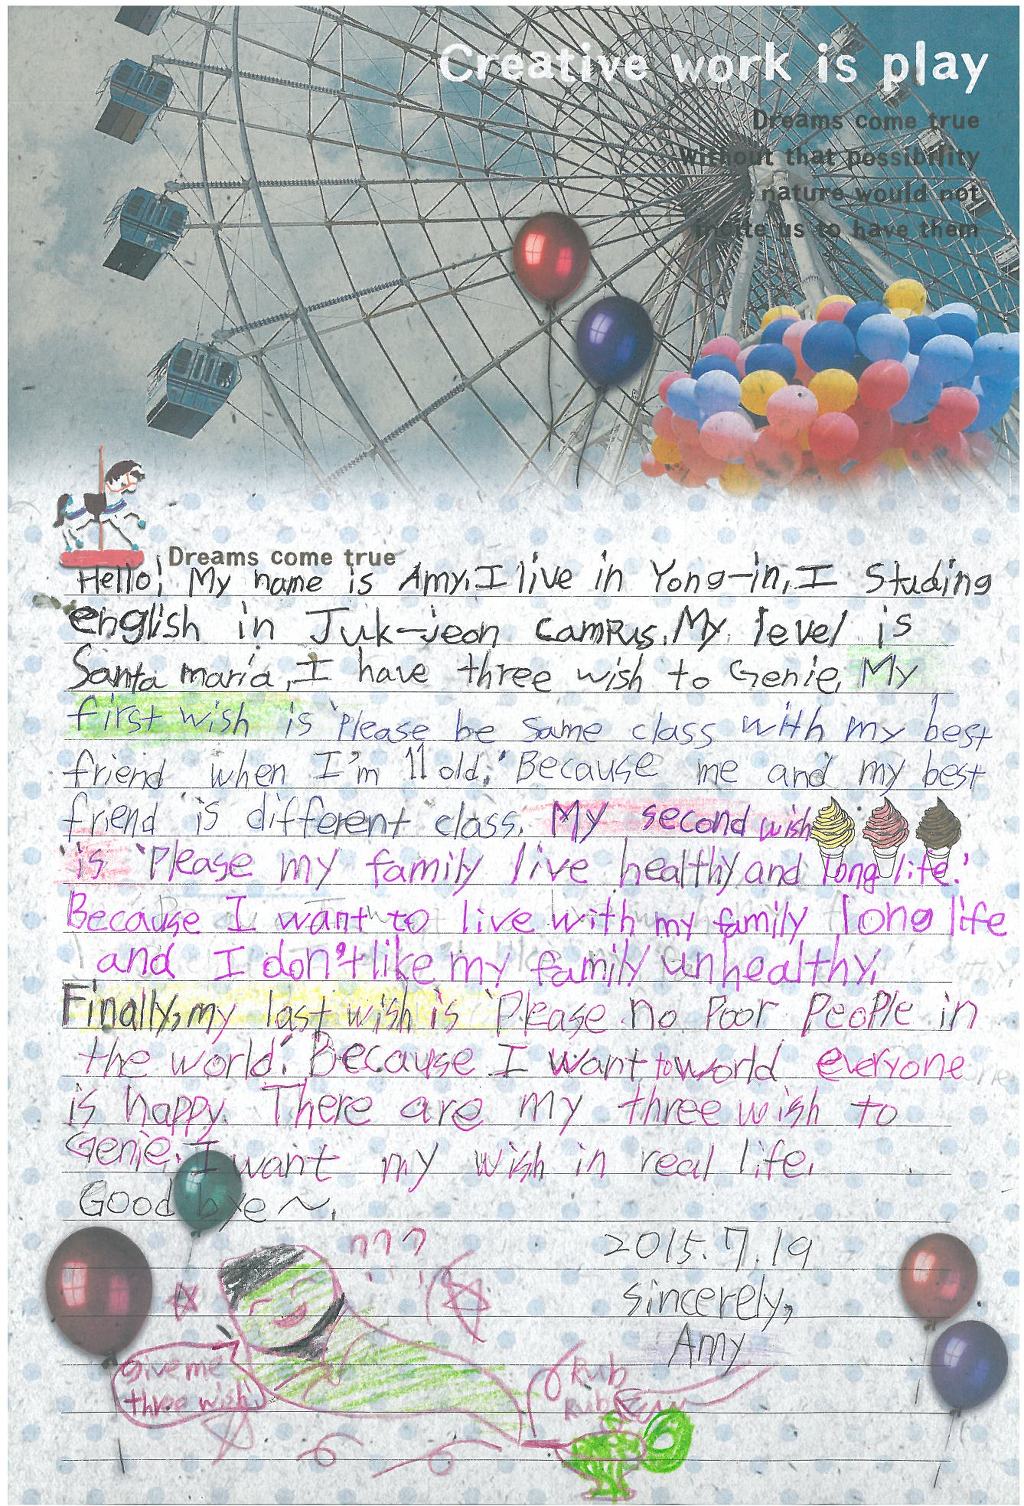 Creative work is play
Dreams come true
Without that possibility
nature would not
incite us to have them
Dreams come true
Hello! My name is Amy. I live in Yong-in. I Studing
english in Juk-jeon campus. My level is
Santa maria. I have three wish to Genie. My
first wish is 'Please be same class with my best
friend when I'm 11 old.' Because me and my best
friend is different class. My second wish
is 'Please my family live healthy and long life.'
Because I want to live with my family long life
and I don't like my family unhealthy.
Finally, my last wish is 'Please no Poor People in
the world.' Because I want to world everyone
is happy. There are my three wish to
Genie. I want my wish in real life.
Good bye ~.
2015. 7. 19
sincerely,
Amy
???
Give me
three wish
Rub
Rub